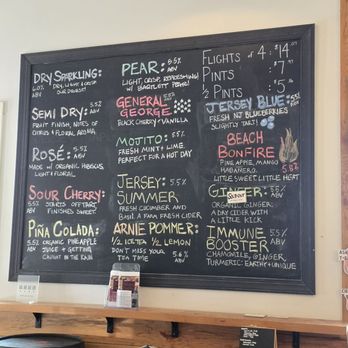 DRY SPARKLING:
6.0% ABV
SEMI DRY:
5.5% ABV
FRUIT FINISH NOTES OF
CITRUS & FLORAL AROMA
ROSÉ:
5.5% ABV
MADE W/ ORGANIC HIBISCUS
LIGHT & FLORAL
SOUR CHERRY:
5.5% ABV
STARTS OFF TART
FINISHES SWEET
PIÑA COLADA:
5.5% ABV
ORGANIC PINEAPPLE
JUICE + GETTING
CAUGHT IN THE RAIN
PEAR:
5.5% ABV
LIGHT, CRISP, REFRESHING
W/ BARTLETT PEARS
GENERAL
GEORGE
5.5% ABV
BLACK CHERRY & VANILLA
MOJITO:
5.5% ABV
FRESH MINT & LIME
PERFECT FOR A HOT DAY
JERSEY:
SUMMER
5.5% ABV
FRESH CUCUMBER AND
BASIL A FARM FRESH CIDER
ARNIE POMMER:
1/2 ICETEA 1/2 LEMON
DON'T MISS YOUR
TEA TIME
5.6% ABV
FLIGHTS OF 4: $14
PINTS $7
1/2 PINTS $5
JERSEY BLUE:
5.5% ABV
FRESH NJ BLUEBERRIES
SLIGHTLY TART!
BEACH
BONFIRE
PINEAPPLE, MANGO
HABANERO.
5.5%
LITTLE SWEET LITTLE HEAT
GINGER:
5.5% ABV
ORGANIC GINGER
A DRY CIDER WITH
A LITTLE KICK
IMMUNE
BOOSTER
5.5% ABV
CHAMOMILE, GINGER,
TURMERIC: EARTHY & UNIQUE